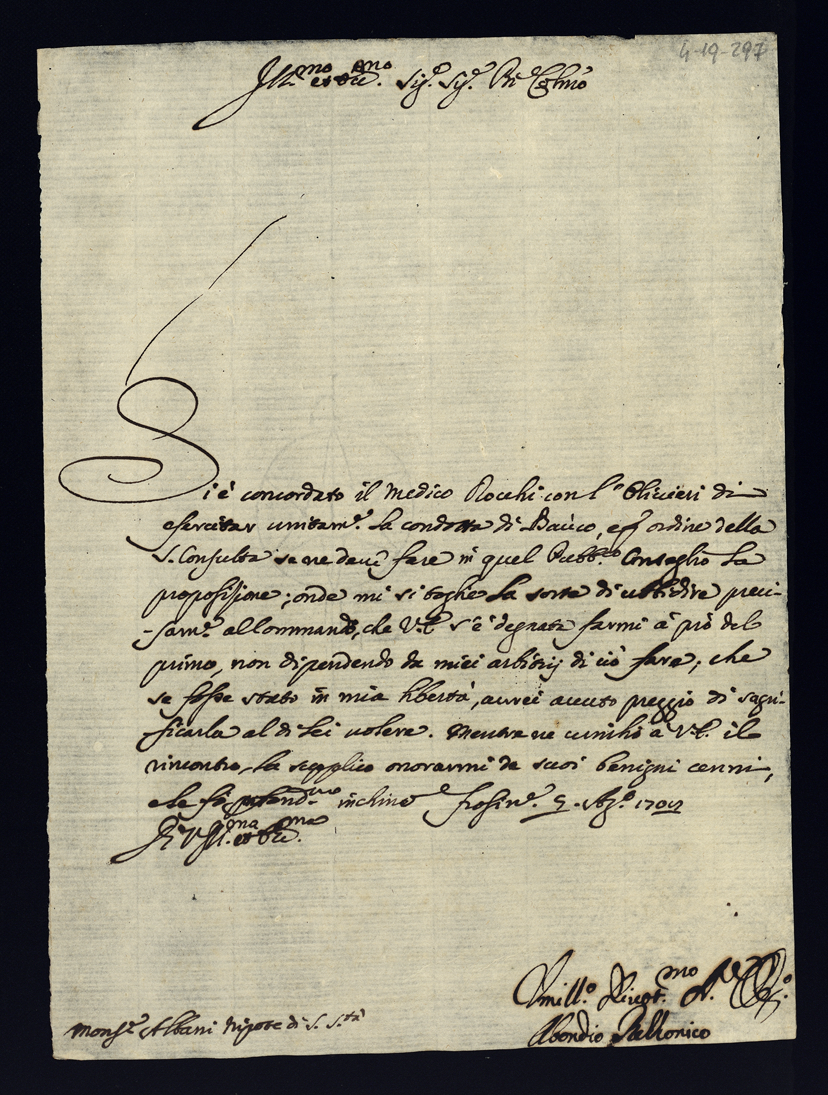 4-19-297
Ill.mo et Ecc.mo Sig.r Sig.r P.ne Col.mo
Si è concordato il Medico Rocchi con l'Olivieri di
esercitar unitam.te la condotta di Bauco, e p ordine della
S. Consulta se ne deve fare in quel Pubb.o Conseglio la
proposizione; onde mi si toglie la sorte di ubbidire preci-
-sam.te al Commando, che V.E. s'è degnata farmi à prò del
primo, non dipendendo da miei arbitrij di ciò fare; che
se fosse stato in mia libertà, averei avuto preggio di sagri-
ficarla al di Lei volere. Mentre ne umilio à V.E. il
rincontro, la supplico onorarmi de suoi benigni cenni,
e le fò profond.mo inchino Frosin.e 5 1702
Di V. Ill.ma et Ecc.ma
Umill.o Divot.mo
Abondio Rezzonico
Mons.r Albani Nipote di S. S.tà